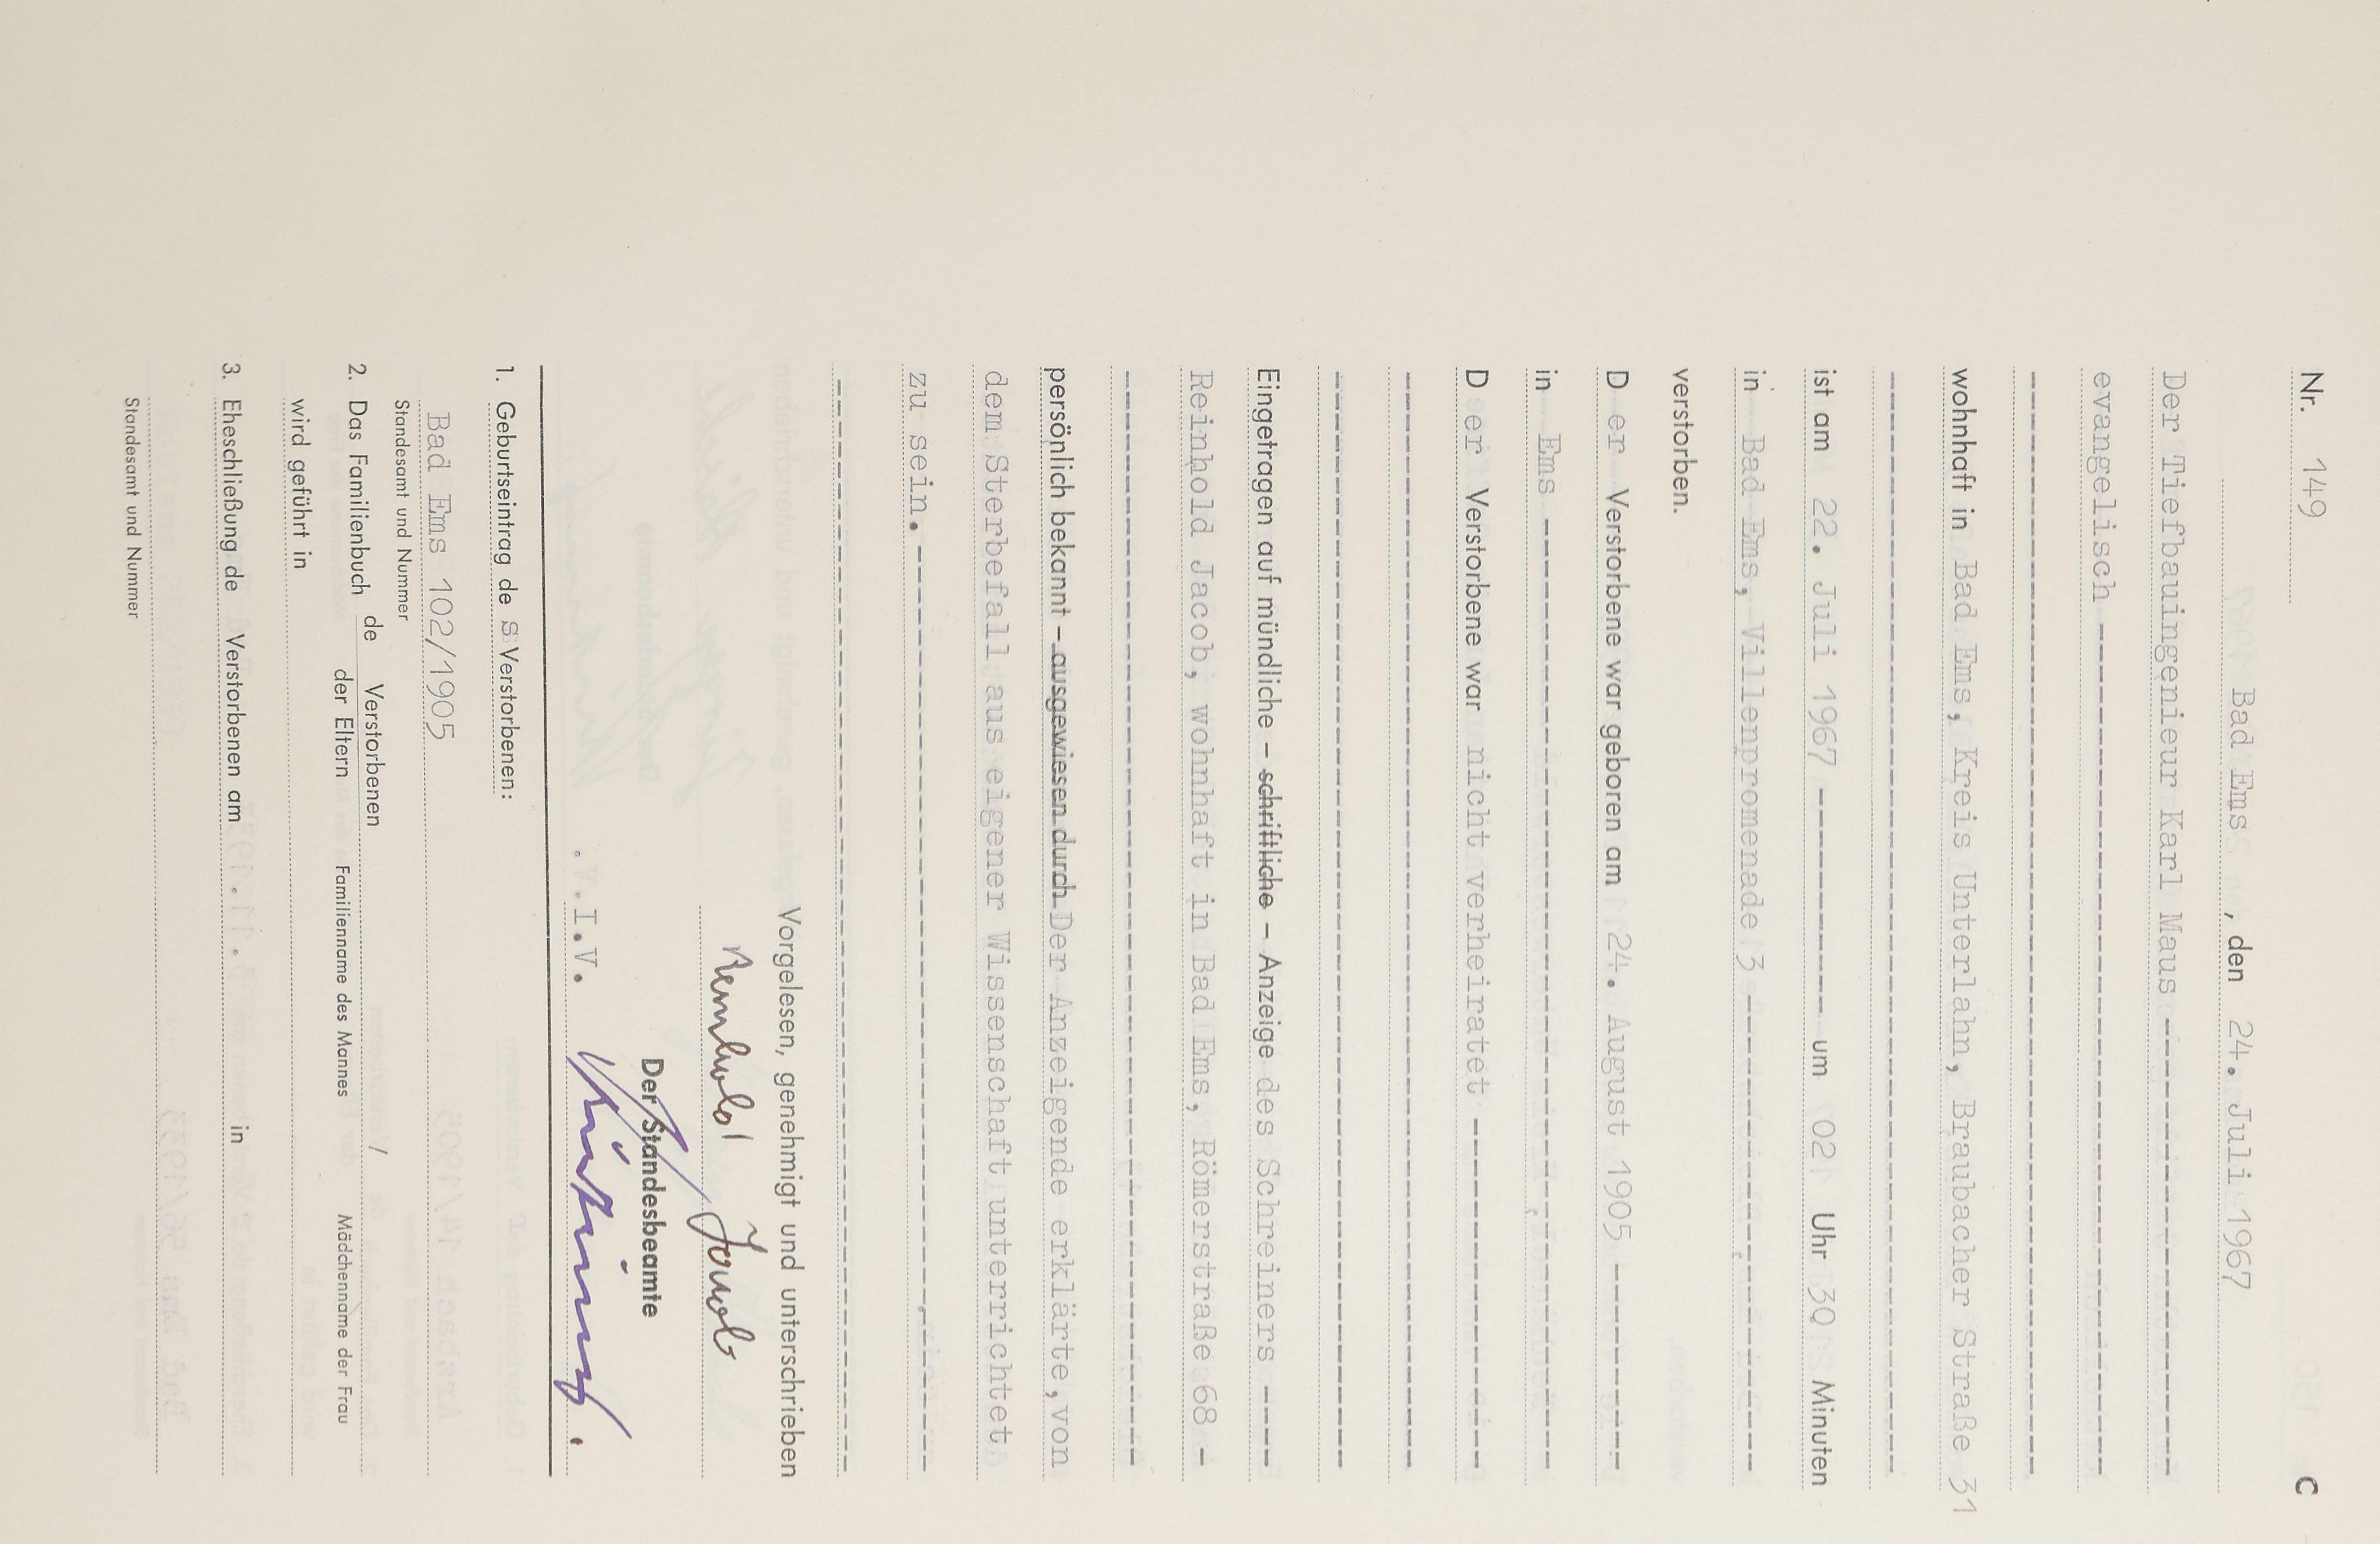 Nr. 149 C
Bad Ems, den 24. Juli 1967
Der Tiefbauingenieur Karl Maus ---
evangelisch ---
---
wohnhaft in Bad Ems, Kreis Unterlahn, Braubacher Straße 31
---
ist am 22. Juli 1967 --- um 02 Uhr 30 Minuten
in Bad Ems, Villenpromenade 3 ---
verstorben.
D er Verstorbene war geboren am 24. August 1905 ---
in Ems ---
D er Verstorbene war nicht verheiratet ---
---
---
Eingetragen auf mündliche – schriftliche – Anzeige des Schreiners ---
Reinhold Jacob, wohnhaft in Bad Ems, Römerstraße 68 -
---
persönlich bekannt – ausgewiesen durch Der Anzeigende erklärte, von
dem Sterbefall aus eigener Wissenschaft unterrichtet
zu sein. ---
---
Vorgelesen, genehmigt und unterschrieben
Reinhold Jacob
Der Standesbeamte
I.V.
1. Geburtseintrag de s Verstorbenen:
Bad Ems 102/1905
Standesamt und Nummer
2. Das Familienbuch de Verstorbenen /
der Eltern Familienname des Mannes Mädchenname der Frau
wird geführt in
3. Eheschließung de Verstorbenen am in
Standesamt und Nummer